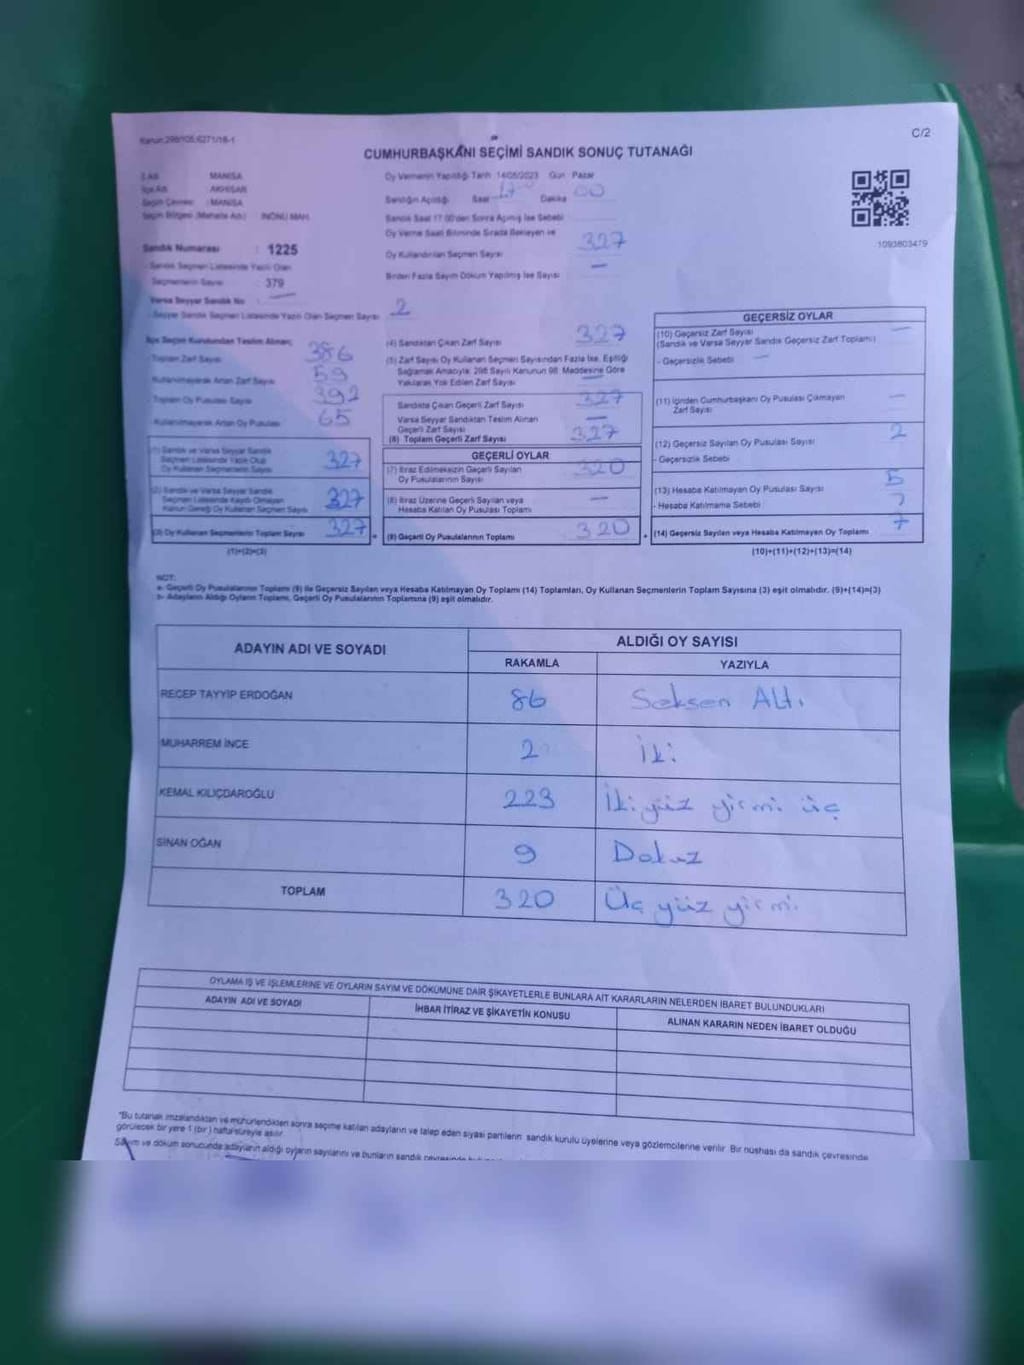 Kanun:298/105,6271/18-1
C/2
CUMHURBAŞKANI SEÇİMİ SANDIK SONUÇ TUTANAĞI
İl Adı MANİSA
İlçe Adı AKHİSAR
Seçim Çevresi : MANİSA
Seçim Bölgesi (Mahalle Adı) İNÖNÜ MAH.
Sandık Numarası : 1225
- Sandık Seçmen Listesinde Yazılı Olan
Seçmenlerin Sayısı : 379
Varsa Seyyar Sandık No : —
- Seyyar Sandık Seçmen Listesinde Yazılı Olan Seçmen Sayısı 2
Oy Vermenin Yapıldığı Tarih 14/05/2023 Gün Pazar
Sandığın Açıldığı Saat 17 Dakika 00
Sandık Saat 17:00'den Sonra Açılmış İse Sebebi
Oy Verme Saati Bitiminde Sırada Bekleyen ve
Oy Kullandırılan Seçmen Sayısı 327
Birden Fazla Sayım Döküm Yapılmış İse Sayısı —
1093803479
İlçe Seçim Kurulundan Teslim Alınan;
Toplam Zarf Sayısı 386
Kullanılmayarak Artan Zarf Sayısı 59
Toplam Oy Pusulası Sayısı 392
Kullanılmayarak Artan Oy Pusulası 65
(1) Sandık ve Varsa Seyyar Sandık
Seçmen Listesinde Yazılı Olup
Oy Kullanan Seçmenlerin Sayısı 327
(2) Sandık ve Varsa Seyyar Sandık
Seçmen Listesinde Kayıtlı Olmayan
Kanun Gereği Oy Kullanan Seçmen Sayısı 327
(3) Oy Kullanan Seçmenlerin Toplam Sayısı 327
(1)+(2)=(3)
(4) Sandıktan Çıkan Zarf Sayısı 327
(5) Zarf Sayısı Oy Kullanan Seçmen Sayısından Fazla İse, Eşitliği
Sağlamak Amacıyla; 298 Sayılı Kanunun 98. Maddesine Göre
Yakılarak Yok Edilen Zarf Sayısı —
Sandıkta Çıkan Geçerli Zarf Sayısı 327
Varsa Seyyar Sandıktan Teslim Alınan
Geçerli Zarf Sayısı —
(6) Toplam Geçerli Zarf Sayısı 327
GEÇERLİ OYLAR
(7) İtiraz Edilmeksizin Geçerli Sayılan
Oy Pusulalarının Sayısı 320
(8) İtiraz Üzerine Geçerli Sayılan veya
Hesaba Katılan Oy Pusulası Toplamı —
(9) Geçerli Oy Pusulalarının Toplamı 320
GEÇERSİZ OYLAR
(10) Geçersiz Zarf Sayısı —
(Sandık ve Varsa Seyyar Sandık Geçersiz Zarf Toplamı)
- Geçersizlik Sebebi —
(11) İçinden Cumhurbaşkanı Oy Pusulası Çıkmayan
Zarf Sayısı —
(12) Geçersiz Sayılan Oy Pusulası Sayısı 2
- Geçersizlik Sebebi
(13) Hesaba Katılmayan Oy Pusulası Sayısı 5
- Hesaba Katılmama Sebebi
(14) Geçersiz Sayılan veya Hesaba Katılmayan Oy Toplamı 7
(10)+(11)+(12)+(13)=(14)
NOT:
a- Geçerli Oy Pusulalarının Toplamı (9) ile Geçersiz Sayılan veya Hesaba Katılmayan Oy Toplamı (14) Toplamları, Oy Kullanan Seçmenlerin Toplam Sayısına (3) eşit olmalıdır. (9)+(14)=(3)
b- Adayların Aldığı Oyların Toplamı, Geçerli Oy Pusulalarının Toplamına (9) eşit olmalıdır.
ADAYIN ADI VE SOYADI ALDIĞI OY SAYISI
RAKAMLA YAZIYLA
RECEP TAYYİP ERDOĞAN 86 Seksen Altı
MUHARREM İNCE 2 İki
KEMAL KILIÇDAROĞLU 223 İki yüz yirmi üç
SİNAN OĞAN 9 Dokuz
TOPLAM 320 Üç yüz yirmi
OYLAMA İŞ VE İŞLEMLERİNE VE OYLARIN SAYIM VE DÖKÜMÜNE DAİR ŞİKAYETLERLE BUNLARA AİT KARARLARIN NELERDEN İBARET BULUNDUKLARI
ADAYIN ADI VE SOYADI İHBAR İTİRAZ VE ŞİKAYETİN KONUSU ALINAN KARARIN NEDEN İBARET OLDUĞU
*Bu tutanak imzalandıktan ve mühürlendikten sonra seçime katılan adayların ve talep eden siyasi partilerin sandık kurulu üyelerine veya gözlemcilerine verilir. Bir nüshası da sandık çevresinde
görülecek bir yere 1 (bir) hafta süreyle asılır.
Sayım ve döküm sonucunda adayların aldığı oyların sayılarını ve bunların sandık